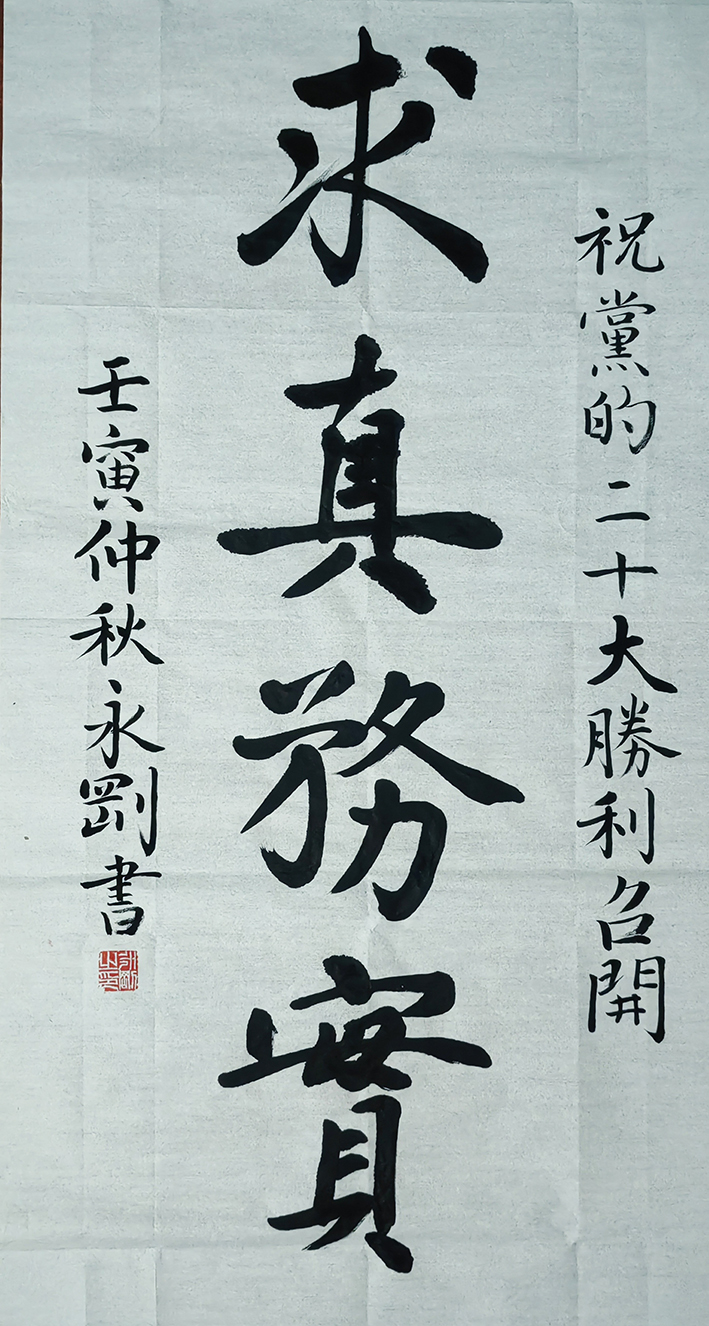 祝黨的二十大勝利召開
求真務實
壬寅仲秋永剛書
永剛之印